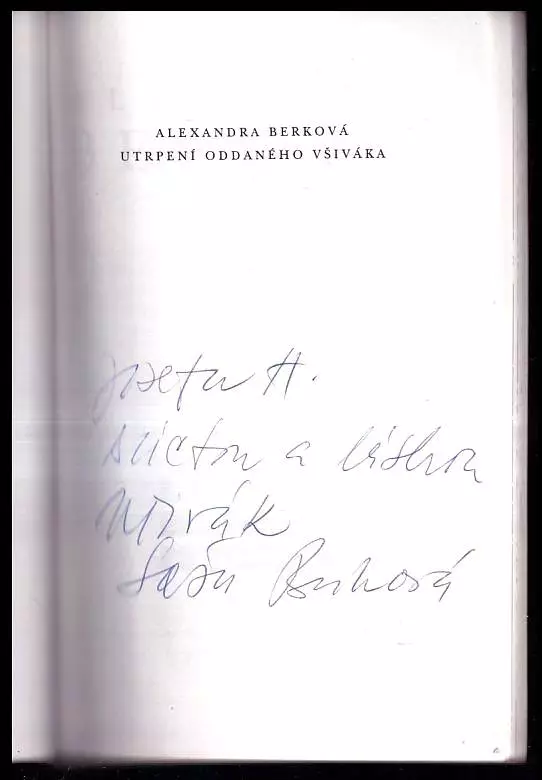 ALEXANDRA BERKOVÁ
UTRPENÍ ODDANÉHO VŠIVÁKA
Josefu H.
a láskou
Saša Berková